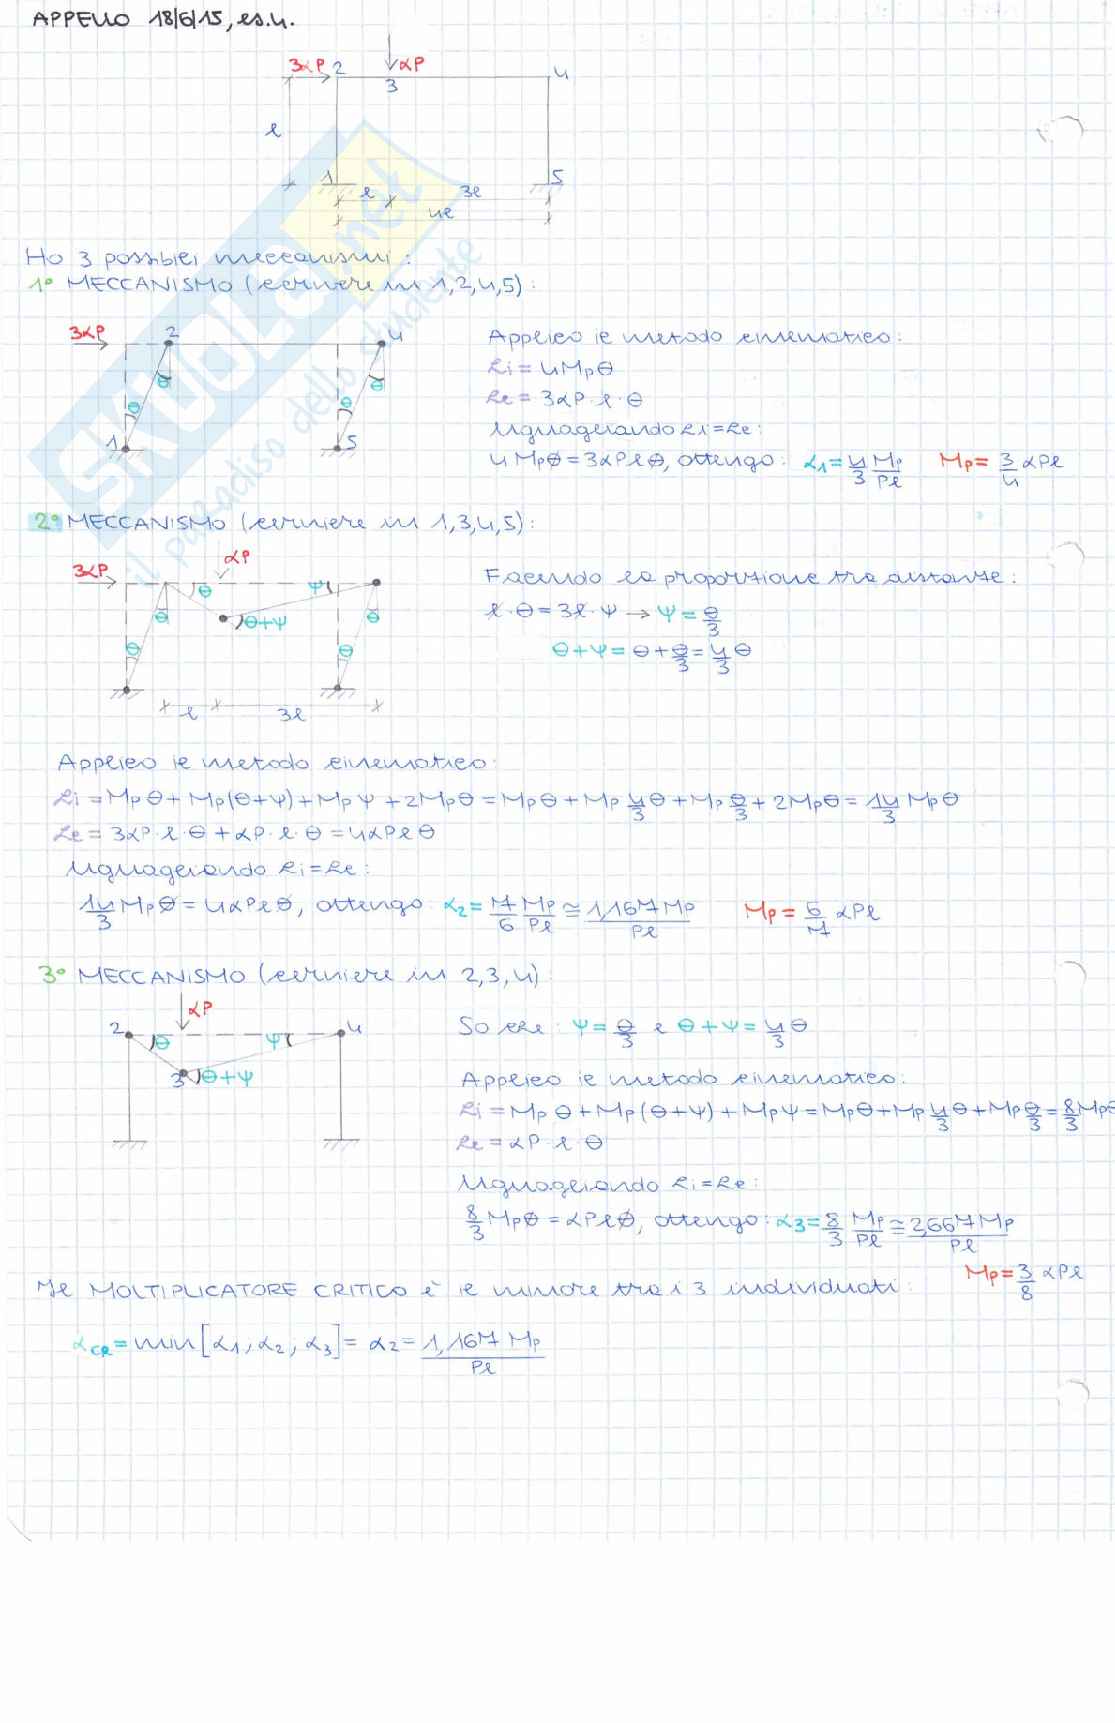 APPELLO 18/6/15, es.4.
3αP 2 αP 4
3
l
1 5
l 3l
4l
Ho 3 possibili meccanismi:
1° MECCANISMO (cerniere in 1,2,4,5):
3αP 2 4
θ θ
θ θ
1 5
Applico il metodo cinematico:
Li = 4Mpθ
Le = 3αP·l·θ
Uguagliando Li=Le:
4Mpθ = 3αPlθ, ottengo: α1 = 4/3 Mp/Pl Mp = 3/4 αPl
2° MECCANISMO (cerniere in 1,3,4,5):
3αP αP
θ ψ
θ θ+ψ θ
θ θ
l 3l
Facendo la proporzione tra distanze:
l·θ = 3l·ψ → ψ = θ/3
θ+ψ = θ+θ/3 = 4/3 θ
Applico il metodo cinematico:
Li = Mpθ + Mp(θ+ψ) + Mpψ + 2Mpθ = Mpθ + Mp 4/3 θ + Mp θ/3 + 2Mpθ = 14/3 Mpθ
Le = 3αP·l·θ + αP·l·θ = 4αPlθ
Uguagliando Li=Le:
14/3 Mpθ = 4αPlθ, ottengo: α2 = 7/6 Mp/Pl ≅ 1,167 Mp/Pl Mp = 6/7 αPl
3° MECCANISMO (cerniere in 2,3,4):
αP
2 4
θ ψ
3 θ+ψ
So che: ψ = θ/3 e θ+ψ = 4/3 θ
Applico il metodo cinematico:
Li = Mpθ + Mp(θ+ψ) + Mpψ = Mpθ + Mp 4/3 θ + Mp θ/3 = 8/3 Mpθ
Le = αP·l·θ
Uguagliando Li=Le:
8/3 Mpθ = αPlθ, ottengo: α3 = 8/3 Mp/Pl ≅ 2,667 Mp/Pl
Mp = 3/8 αPl
Il MOLTIPLICATORE CRITICO è il minore tra i 3 individuati:
αCR = min[α1, α2, α3] = α2 = 1,167 Mp/Pl
SKUOLA.net
il paradiso dello studente